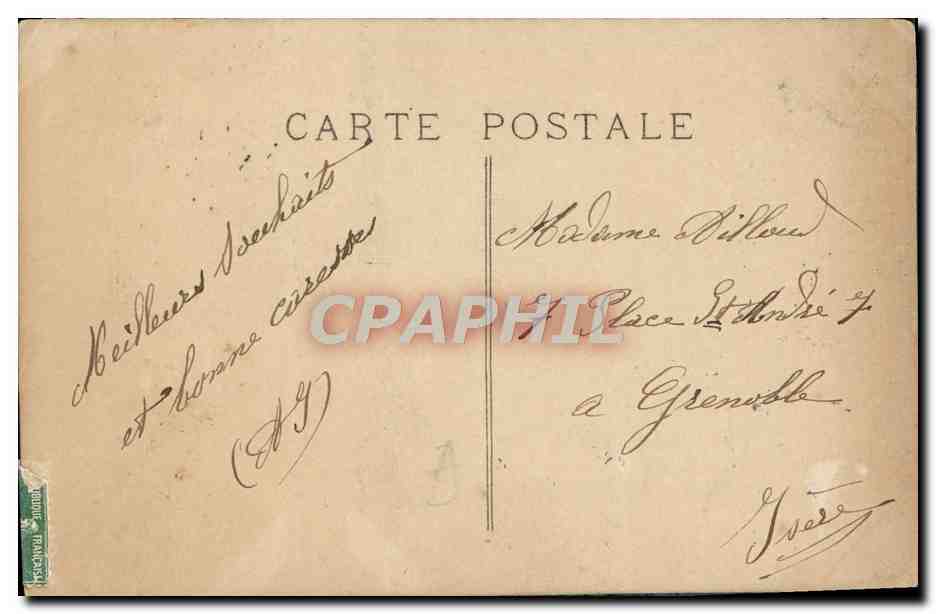 CARTE POSTALE
Meilleurs Souhaits
et bonne caresses
(AG)
Madame Billoud
7 Place St André 7
a Grenoble
Isère
CPAPHIL
BLIQUE FRANÇAISE